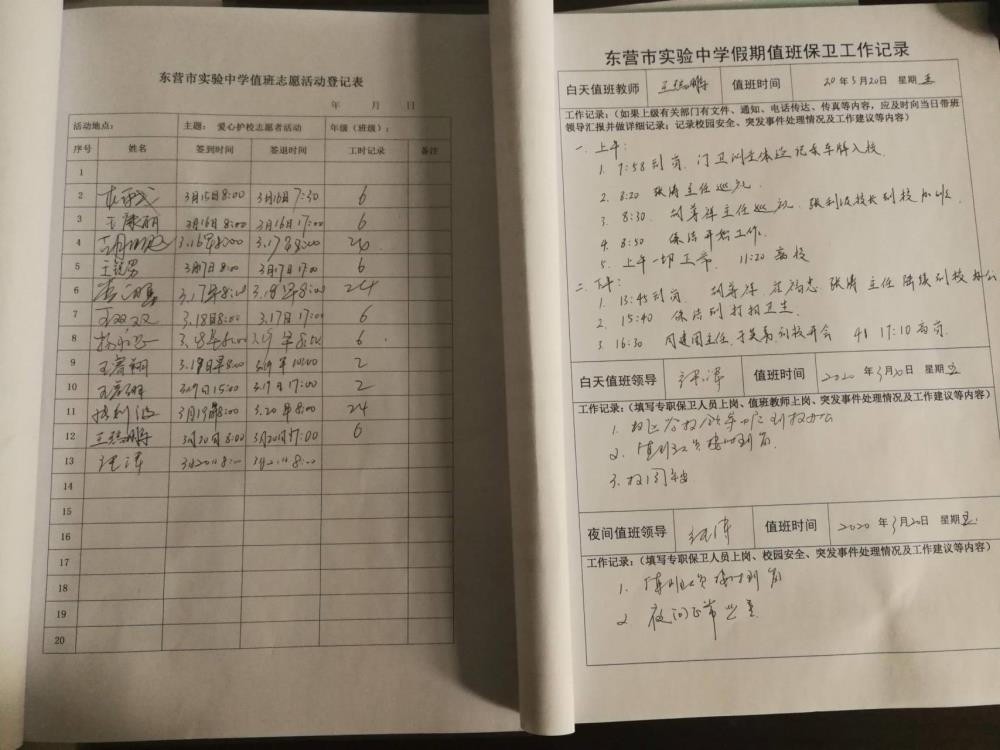 东营市实验中学值班志愿活动登记表
年 月 日
活动地点： 主题： 爱心护校志愿者活动 年级（班级）：
序号 姓名 签到时间 签退时间 工时记录 备注
1
2 3月15日8:00 3月16日7:30 6
3 王康丽 3月16日8:00 3月16日17:00 6
4 3.16早8:00 3.17早8:00
5 3月17日8:00 3月17日17:00 6
6 3.17早8:00 3.18早8:00 24
7 王双双 3.18日8:00 3.17日17:00 6
8 3.18早8:00 6
9 王睿翔 3.19日早8:00 3.19早10:00 2
10 3.19日15:00 3.19日17:00 2
11 张利波 3月19早8:00 3.20早8:00 24
12 王瑞鹏 3月20日8:00 3月20日17:00 6
13 汪涛
14
15
16
17
18
19
20
东营市实验中学假期值班保卫工作记录
白天值班教师 王瑞鹏 值班时间 20年3月20日 星期五
工作记录：（如果上级有关部门有文件、通知、电话传达、传真等内容，应及时向当日带班
领导汇报并做详细记录；记录校园安全、突发事件处理情况及工作建议等内容）
一、上午：
1. 7:58到岗，门卫测体温记录车牌入校.
2. 8:20 张涛主任巡视.
3. 8:30. 胡善祥主任巡视. 张利波校长到校
4. 8:50 保洁开始工作.
5. 上午一切正常. 11:20离校
二、下午：
1. 13:45到岗. 胡善祥. 张涛 主任陆续到校办公
2. 15:40 保洁到打扫卫生
3. 16:30 周建国主任、到校开会 17:10离岗.
白天值班领导 汪涛 值班时间 2020年3月20日 星期五
工作记录：（填写专职保卫人员上岗、值班教师上岗、突发事件处理情况及工作建议等内容）
1. 到校办公
2. 值班人员按时到岗.
3. 校园
夜间值班领导 汪涛 值班时间 2020年3月20日 星期五
工作记录：（填写专职保卫人员上岗、校园安全、突发事件处理情况及工作建议等内容）
1. 值班人员按时到岗
2 夜间正常